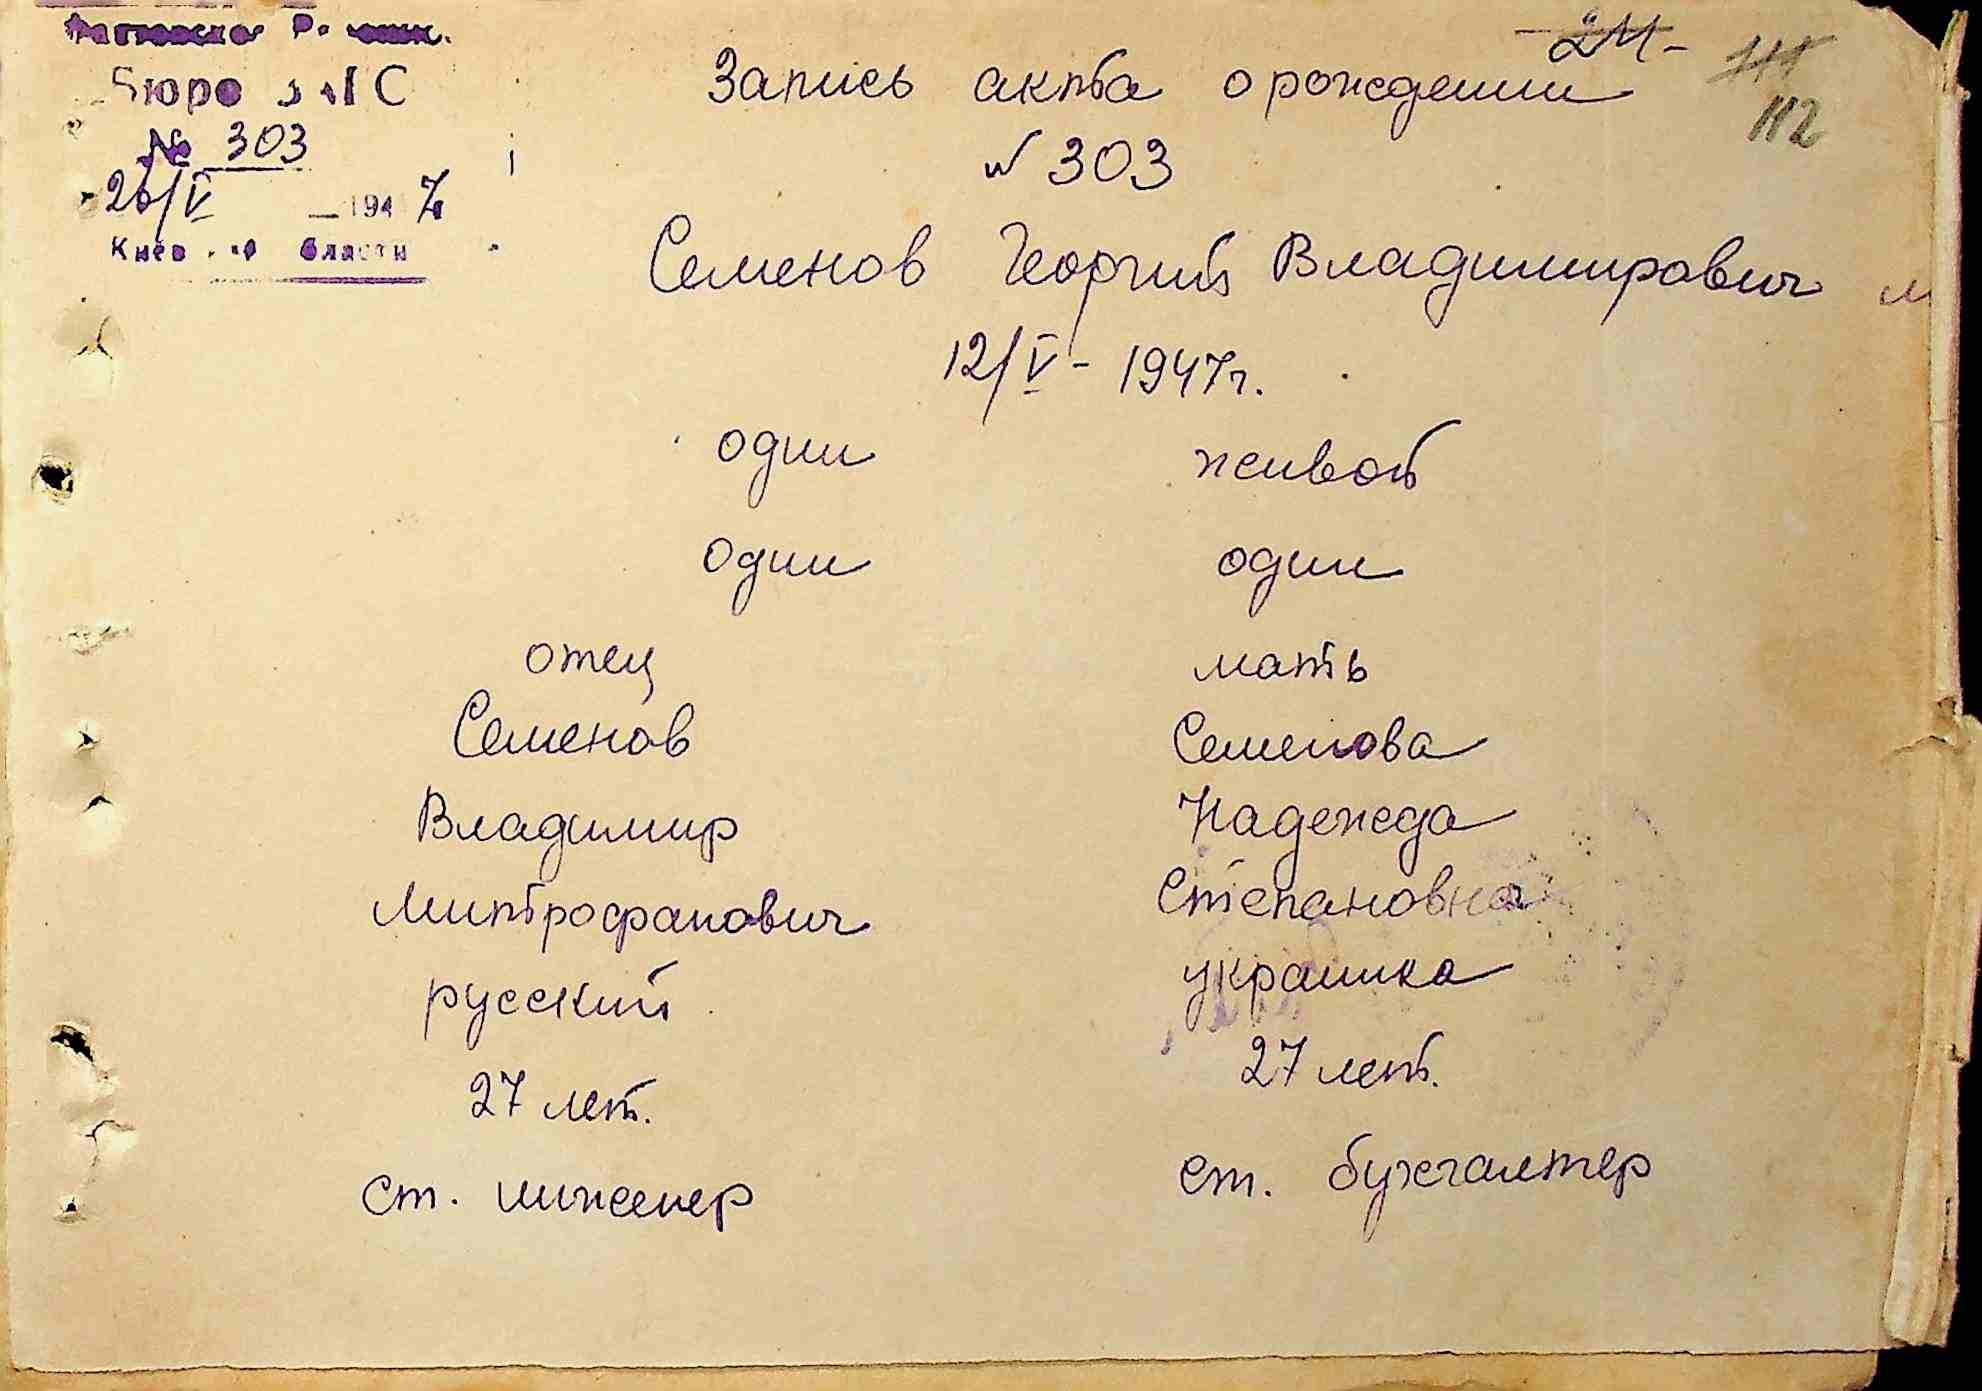 Бюро ЗАГС
№ 303
26/V 1947
Киевской области
24
112
Запись акта о рождении
№ 303
Семенов Георгий Владимирович м
12/V - 1947г.
один живой
один один
отец мать
Семенов Семенова
Владимир Надежда
Митрофанович Степановна
русский украинка
27 лет. 27 лет.
ст. инженер ст. бухгалтер